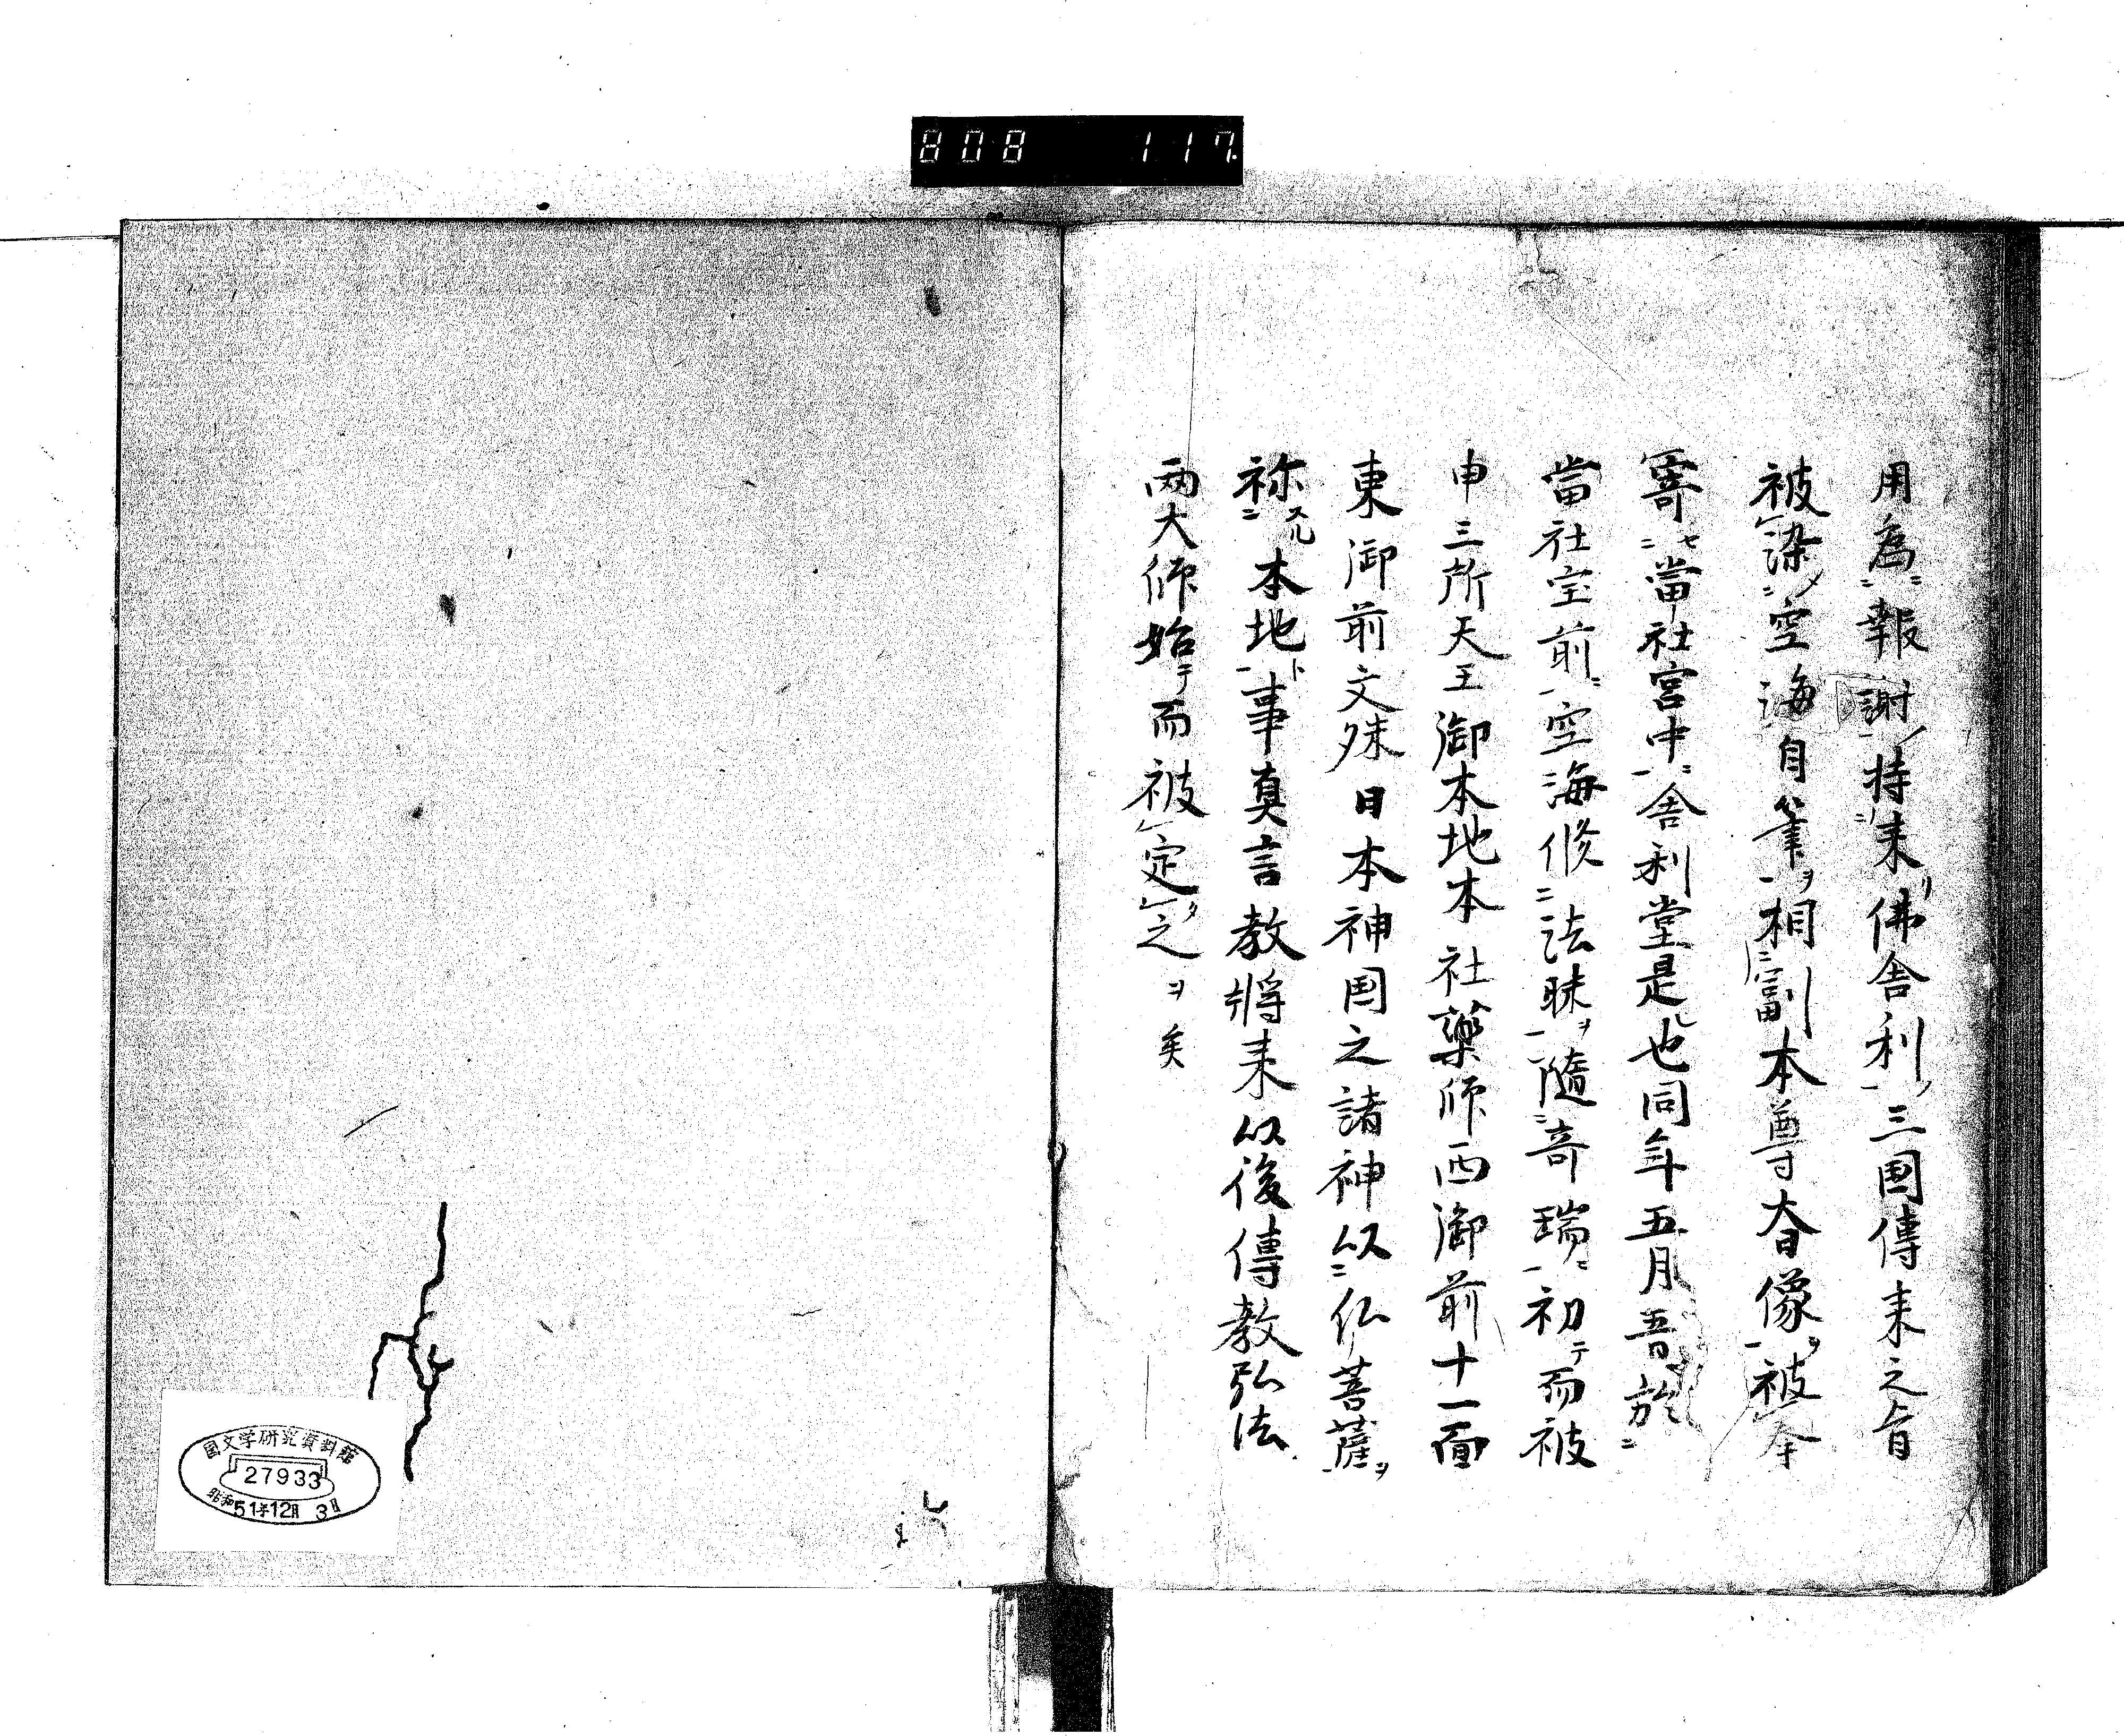 808 117
用為報謝持来佛舎利三国傳来之旨
被染空海自筆相副本尊大日像被奉
寄當社宮中舎利堂是也同年五月吾於
當社宝前空海修法味随奇瑞初テ而被
申三所天王御本地本社藥師西御前十一面
東御前文殊日本神国之諸神以仏菩薩ヲ
祢本地ト事真言教将来以後傳教弘法
両大師始テ而被定之ヲ矣
國文学研究資料館
27933
昭和51年12月3日